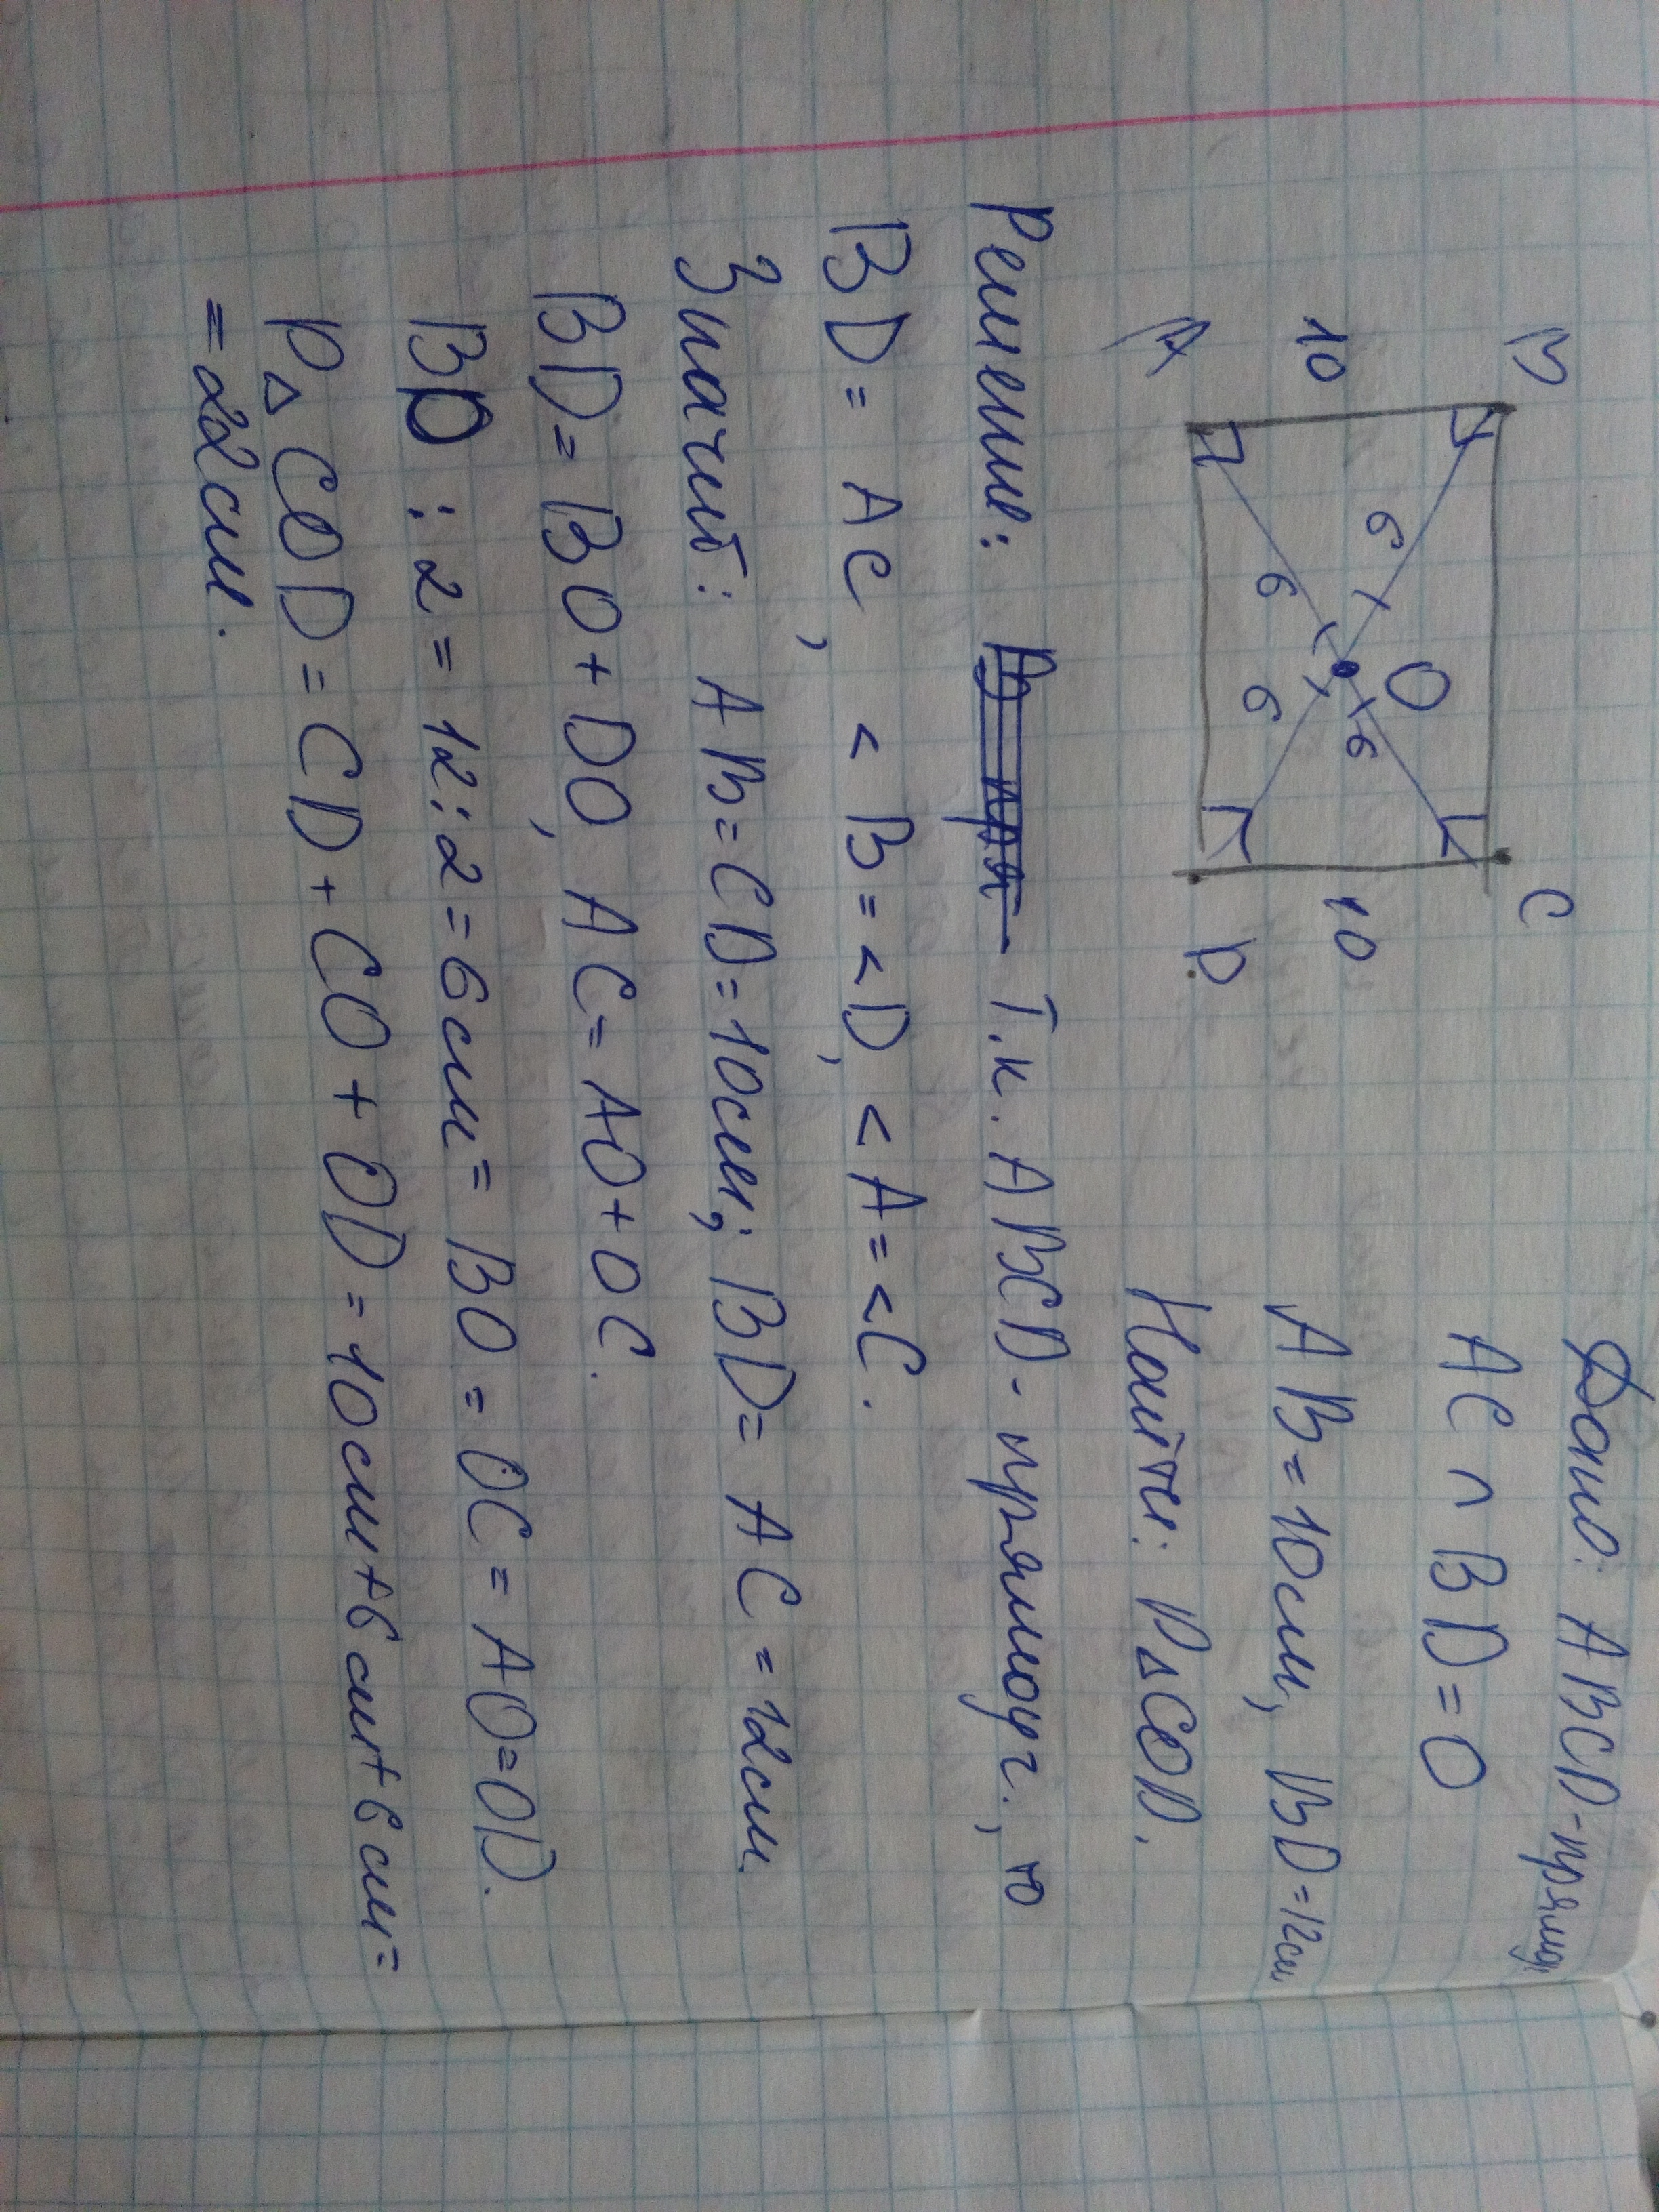 B
C
10
6
O
6
10
6
6
A
D
Дано: ABCD-прямоуг.
AC ∩ BD = O
AB = 10см, BD = 12см
Найти: P△COD.
Решение: Т.к. ABCD - прямоуг., то
BD = AC, < B = < D, < A = < C.
Значит: AB = CD = 10см; BD = AC = 12см.
BD = BO + DO, AC = AO + OC.
BD : 2 = 12 : 2 = 6см = BO = OC = AO = OD.
P△COD = CD + CO + OD = 10см + 6см + 6см =
= 22см.